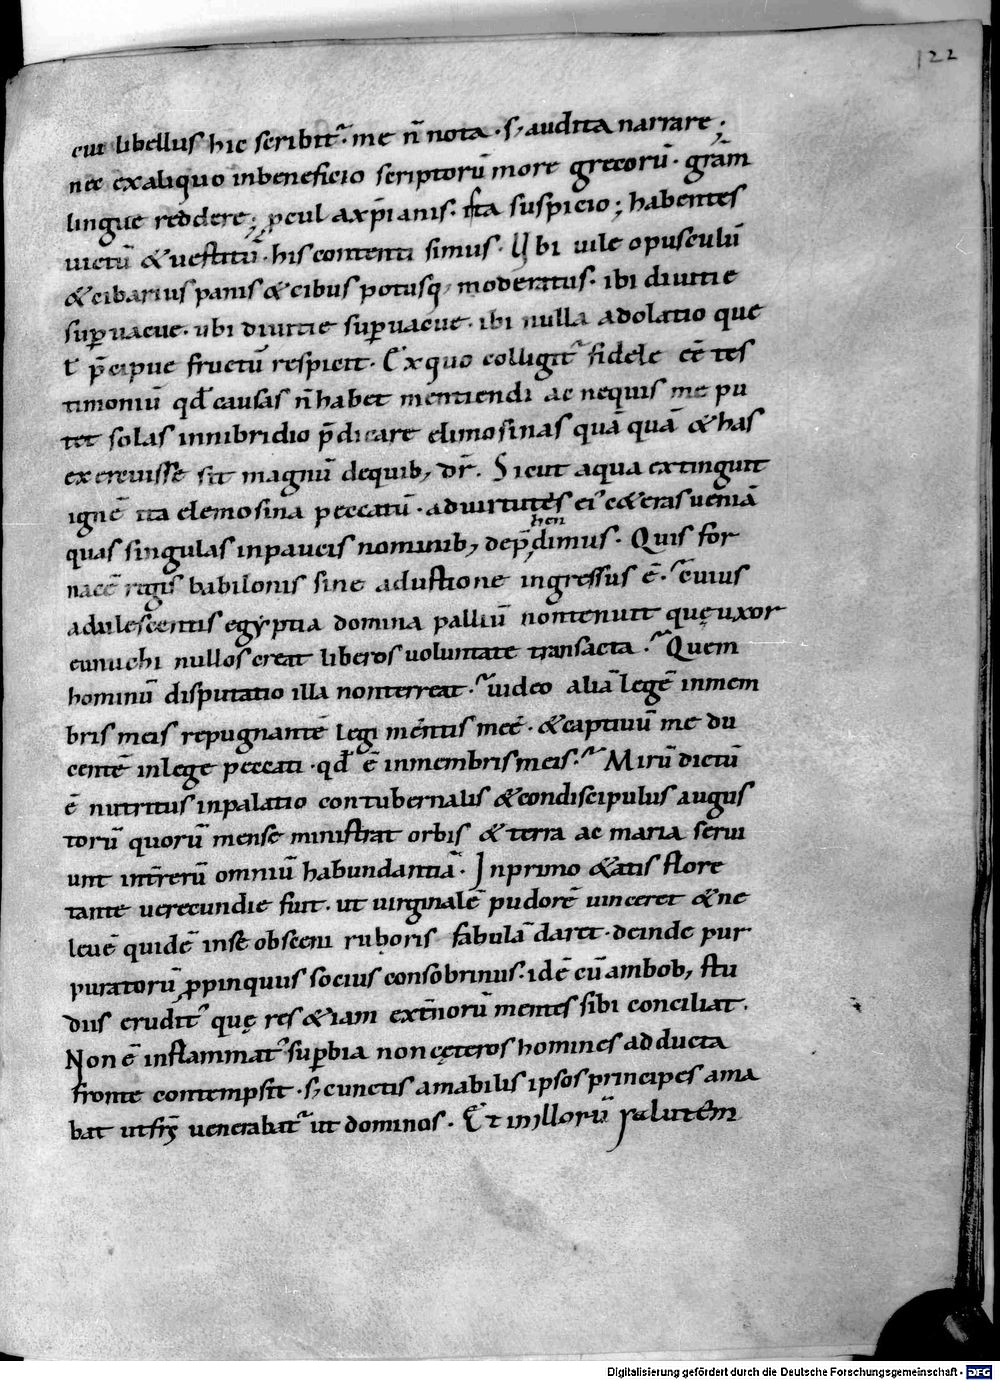 122
cui libellus hic scribit᷑· me n̄ nota · s; audita narrare;
nec ex aliquo in beneficio scriptorū more grecorū · grām
lingue reddere; ꝓcul a xp̄ianis · ista suspicio; habentes
uictū & uestitū · his contenti simus · Ubi uile opusculū
& cibarius panis & cibus potusq; moderatus · ibi diuitie
suꝑuacue · ubi diuitie suꝑuacue · ibi nulla adolatio que
t̄ p̄cipue fructū respicit · Ex quo colligit᷑ fidele eē tes
timoniū qđ causas n̄ habet mentiendi ac nequis me pu
tet solas in nibridio p̄dicare elimosinas quā quā & has
exercuisse sit magnū de quib; dr̄. Sicut aqua extinguit
ignē ita elemosina peccatū · ad uirtutes ei᷒ ceteras ueniā
quas singulas in paucis nominib; dep̄dimus · Quis for
hen
nacē regis babilonis sine adustione ingressus ē · cuius
adulescentis egyptia domina palliū non tenuit quę uxor
eunuchi nullos creat liberos uoluntate transacta · Quem
hominū disputatio illa non terreat · uideo aliā legē in mem
bris meis repugnantē legi mentis meę · & captiuū me du
centē in lege peccati · qđ ē in membris meis · Mirū dictū
ē nutritus in palatio contubernalis & condiscipulus augus
torū quorū mense ministrat orbis & terra ac maria serui
unt int̄ rerū omniū habundantiā · In primo &atis flore
tante uerecundie fuit · ut uirginalē pudorē uinceret & ne
leuē quidē in se obsceni ruboris fabulā daret · deinde pur
puratorū ꝓpinquus socius consobrinus · idē cū ambob; stu
diis erudit᷑ quę res &iam ext̄norū mentes sibi conciliat ·
Non ē inflammat᷒ suꝑbia non cęteros homines adducta
fronte contempsit · s; cunctis amabilis ipsos principes ama
bat ut fr̄s uenerabat᷑ ut dominos · Et in illorū salutem
Digitalisierung gefördert durch die Deutsche Forschungsgemeinschaft - DFG